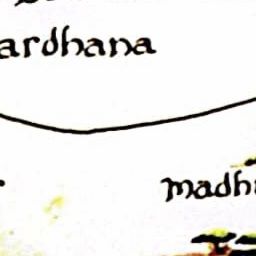 ardhana
madh